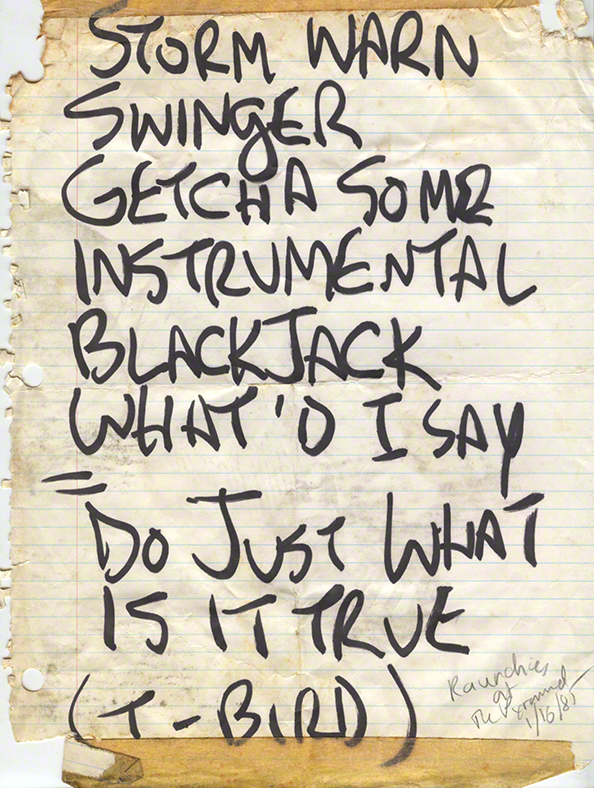 STORM WARN
SWINGER
GETCHA SOME
INSTRUMENTAL
BLACKJACK
WHAT'D I SAY
=
DO JUST WHAT
IS IT TRUE
(T-BIRD)
Raunchies
at
The Pyramid
1/16/85